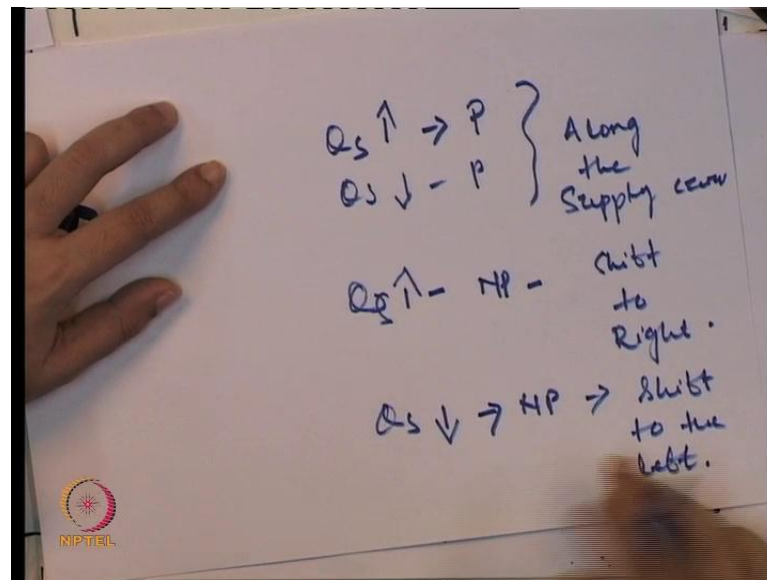 Qs ↑ → P } Along
Qs ↓ - P the
Supply curve
Qs ↑ - NP - Shift
to
Right.
Qs ↓ → NP → Shift
to the
left.
NPTEL